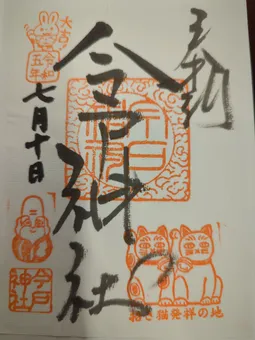 奉拝
今戸神社
今戸神社
招き猫発祥の地
大吉
令和五年
七月十日
今戸神社